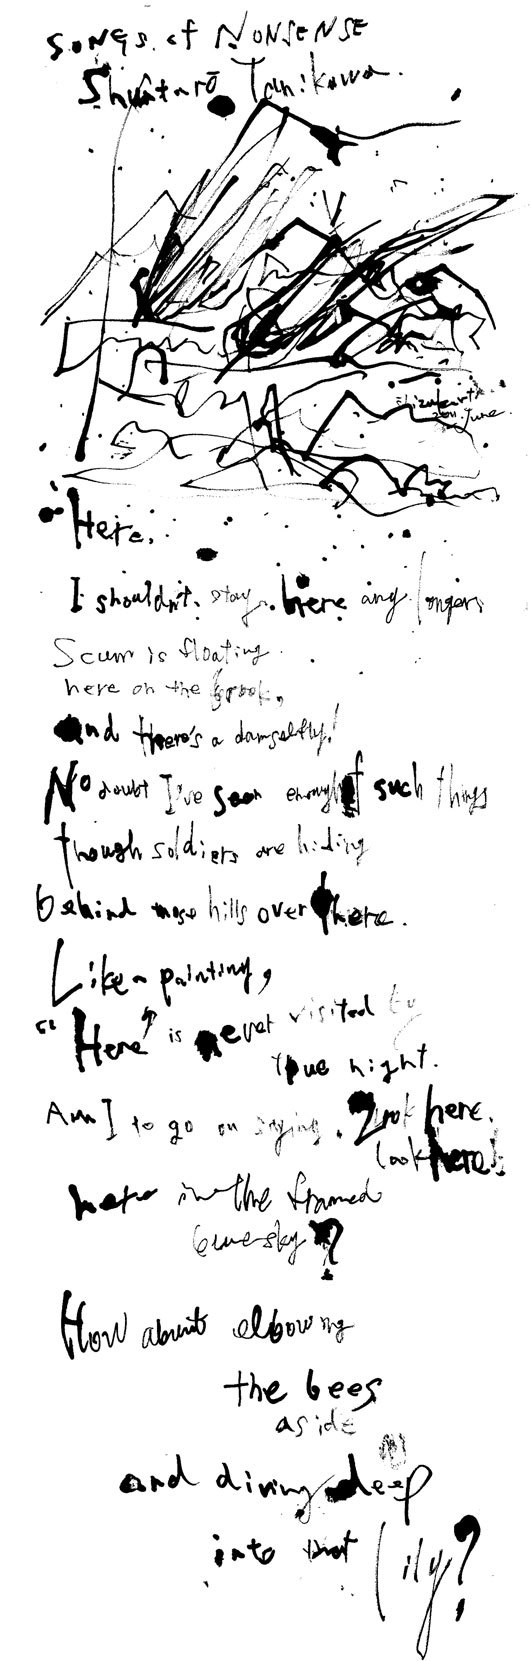 SONGS of NONSENSE
Shuntarō Tanikawa.
2011. June.
"Here.
I shouldn't stay here any longer.
Scum is floating
here on the brook,
and there's a damselfly!
No doubt I've seen enough of such things
though soldiers are hiding
behind those hills over there.
Like a painting,
"Here" is never visited by
true night.
Am I to go on saying, "Look here,
look here!,
here in the framed
blue sky"?
How about elbowing
the bees
aside
and diving deep
into that
lily?